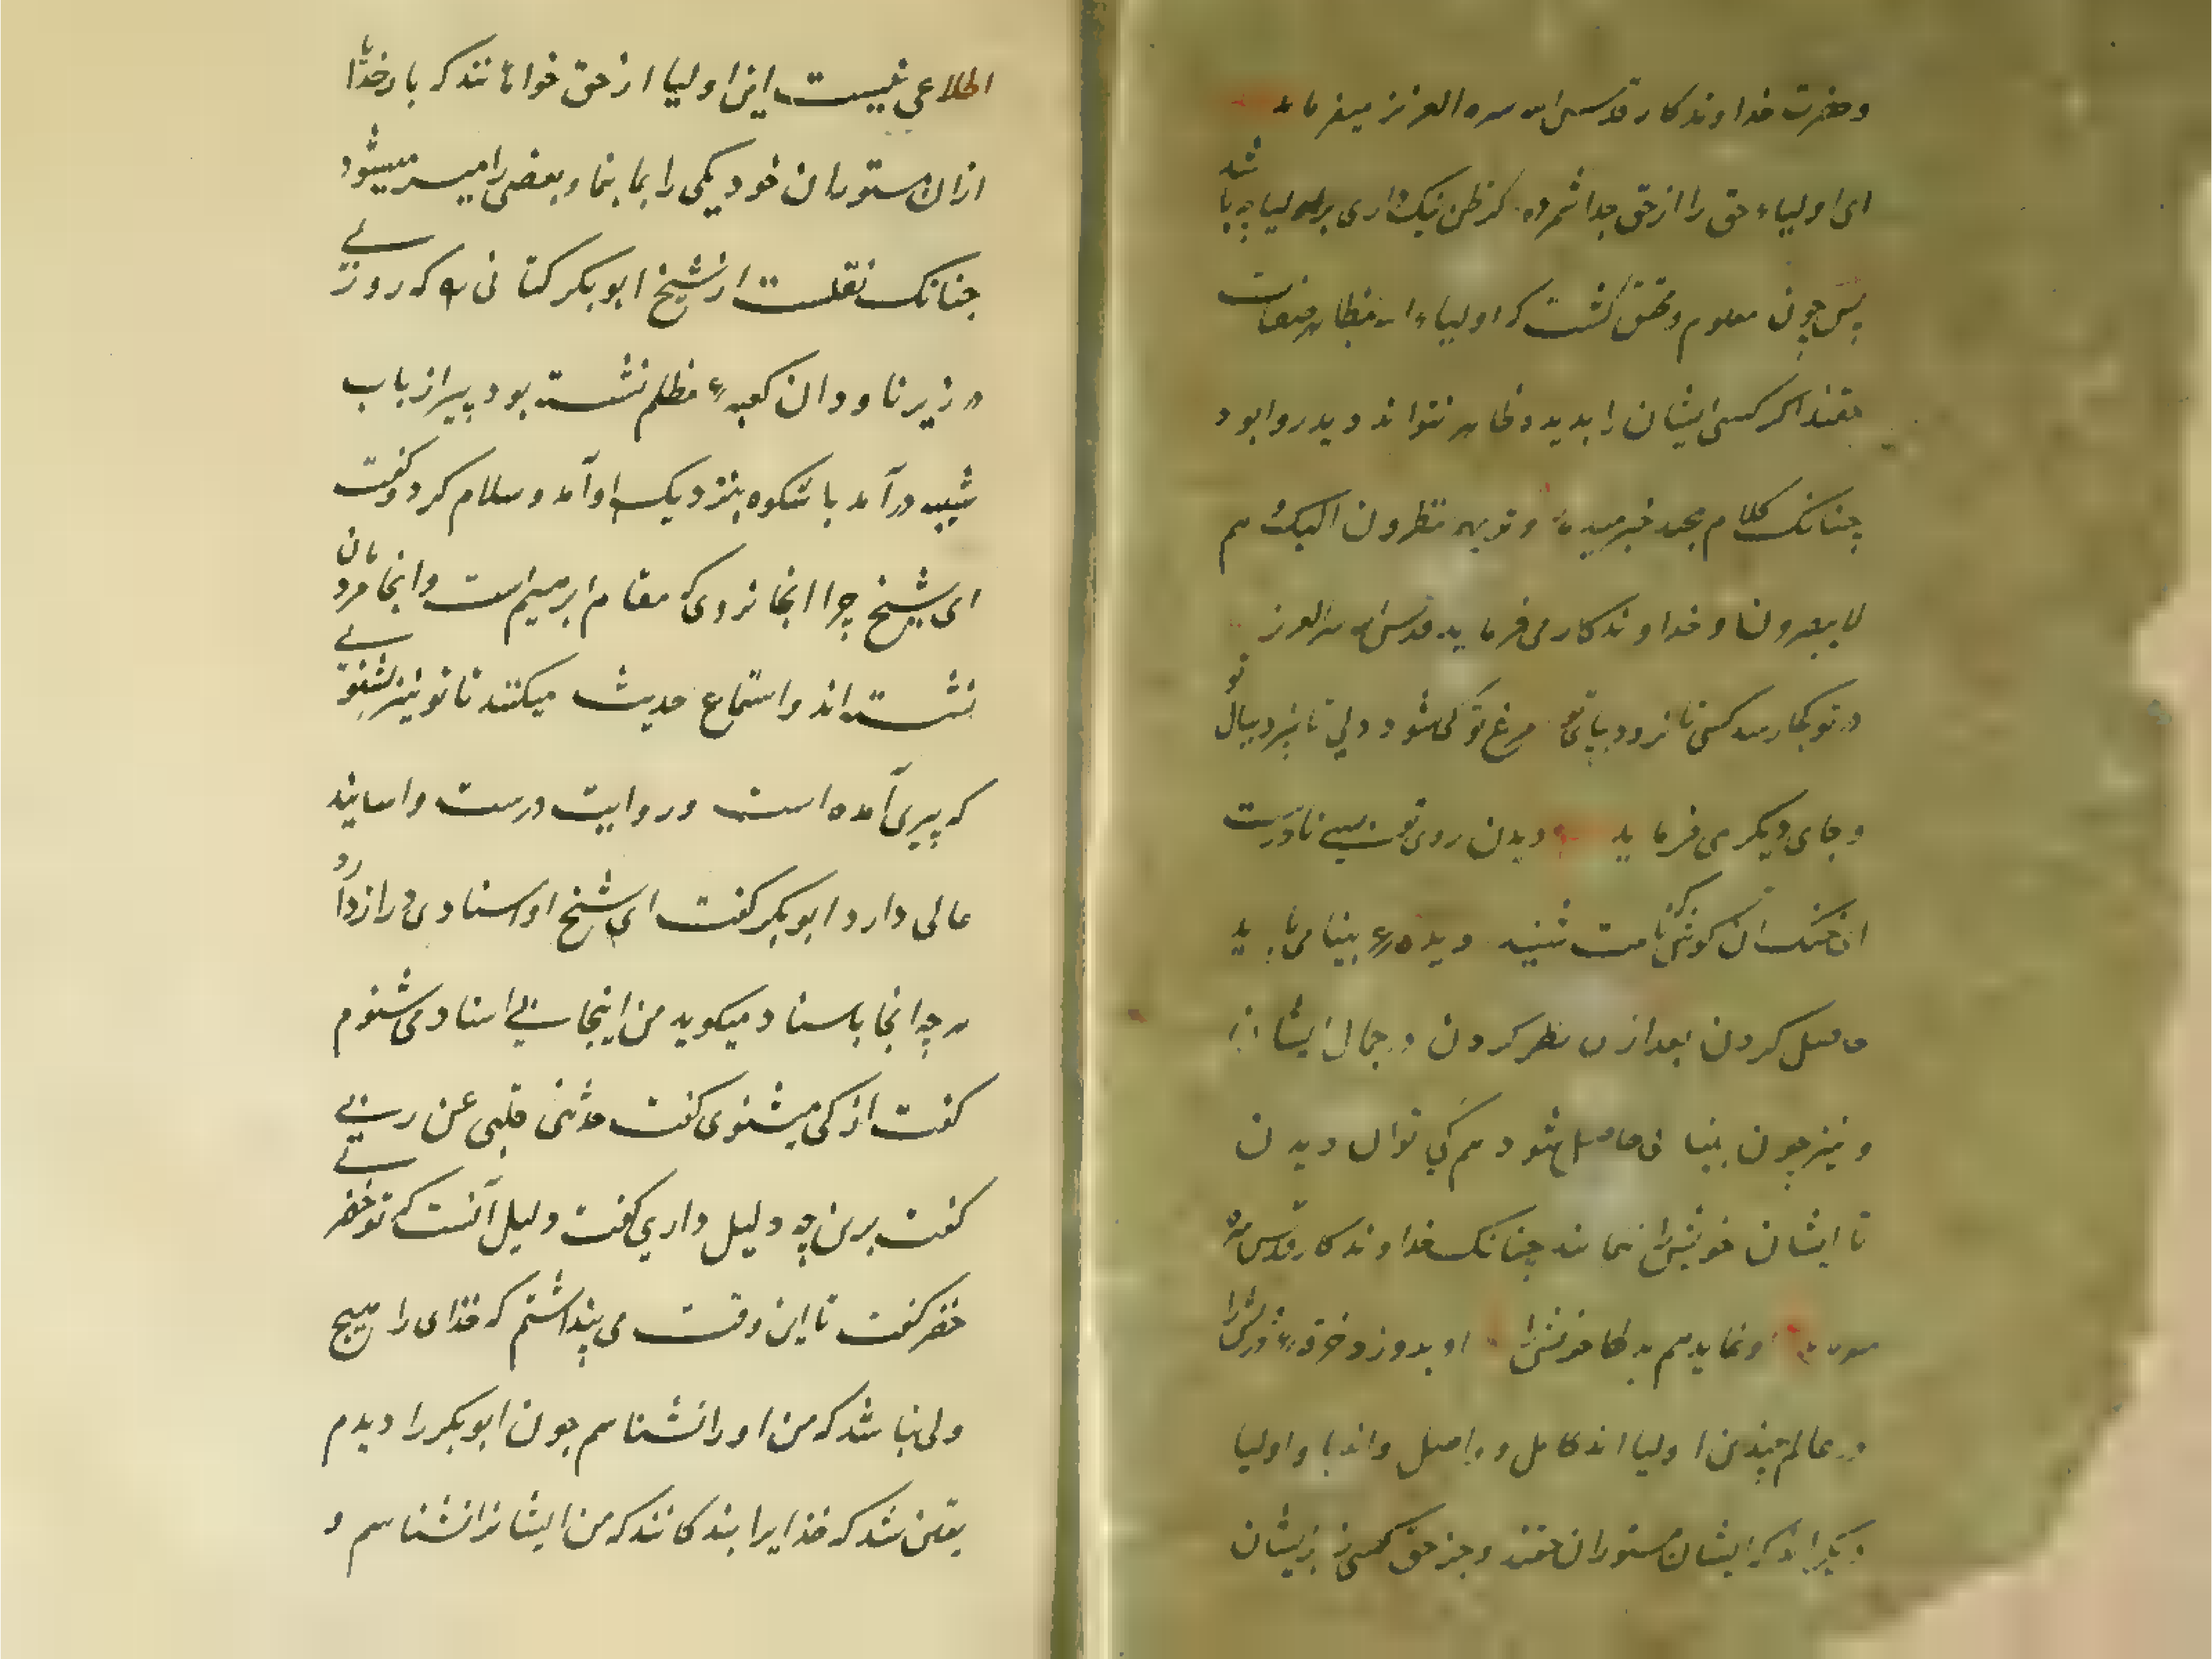 وحضرت خداوندکار قدس الله سره العزیز میفرماید
ای اولیاء حق را از حق جدا شمرده کر ظن نیک داری بر اولیا چه باشد
پس چون معلوم ومحقق کشت که اولیاء الله مظاهر صفات
حقند اکر کسی ایشان را بدیده ظاهر نتواند دید روا بود
چنانک کلام مجید خبر میدهد وتریهم ینظرون الیک وهم
لا یبصرون وخداوندکار می فرماید قدس الله سره العزیز
در تو کجا رسد کسی تا نرود بپای تو مرغ تو کی شود دلی تا نپرد ببال تو
وجای دیکر می فرماید دیدن روی تو بسی نادرست
ای خنک آن کوش که نامت شنید دیدهٔ بینا می باید
حاصل کردن بعد از آن نظر کردن در جمال ایشان
ونیز چون بینائی حاصل شود هم کی توان دیدن
تا ایشان خویش را ننمایند چنانک خداوندکار قدس سره
او نماید هم بدلها خویش را او بدوزد خرقهٔ درویش را
در عالم چندین اولیا اند کامل و واصل واند با واولیا
دیکرند که ایشان مستوران حقند وجز حق کسی را بر ایشان
اطلاعی نیست این اولیا از حق خواهانند که بار خدایا
از آن مستوران خود یکی را بما بنما وبعضی را میسر میشود
جنانک نقلست از شیخ ابوبکر کتانی که روزی
در زیر ناودان کعبهٔ معظم نشسته بود پیر از باب
شیبه درآمد با شکوه بنزدیک او آمد وسلام کرد وکفت
ای شیخ چرا انجا نروی که مقام ابرهیم است وانجا مردمان
نشسته اند واستماع حدیث میکنند تا تو نیز بشنوی
که پیری آمده است وروایت درست واسانید
عالی دارد ابوبکر کفت ای شیخ او اسنادی دراز دارد
هر چه انجا باسناد میکوید من اینجا بی اسناد می شنوم
کفت از کی میشنوی کفت حدثنی قلبی عن ربی
کفت برین چه دلیل داری کفت دلیل آنست که تو خضری
خضر کفت تا این وقت می پنداشتم که خذای را هیج
ولی نباشد که من اورا نشناسم جون ابوبکر را دیدم
یقین شد که خذایرا بندکانند که من ایشانرا نشناسم و